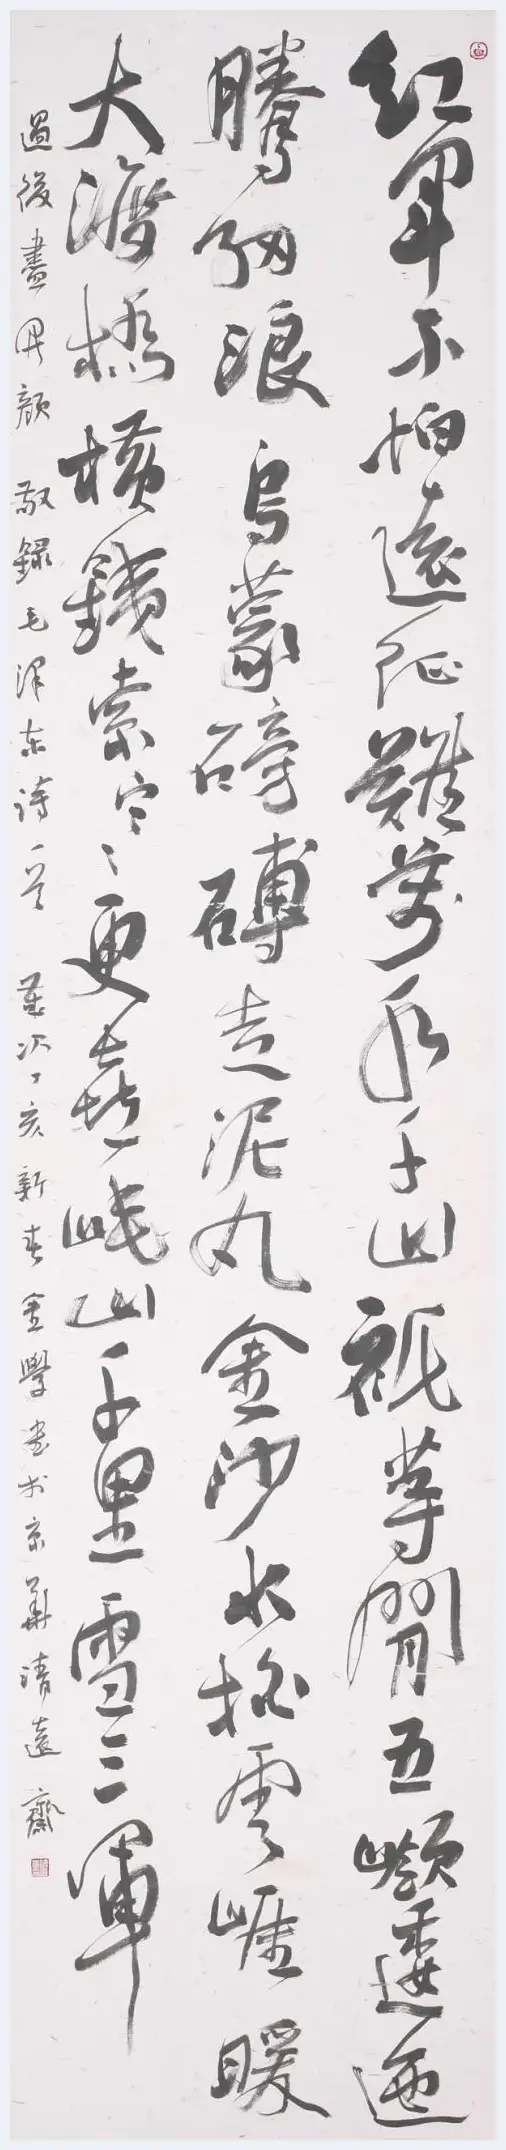 紅軍不怕遠征難萬水千山祇等閒五嶺逶迤
騰細浪烏蒙磅礴走泥丸金沙水拍雲崖暖
大渡橋橫鐵索寒〻更喜岷山千里雪三軍
過後盡開顏 敬錄毛澤东詩一首 歲次丁亥新春金學書於京華清遠齋